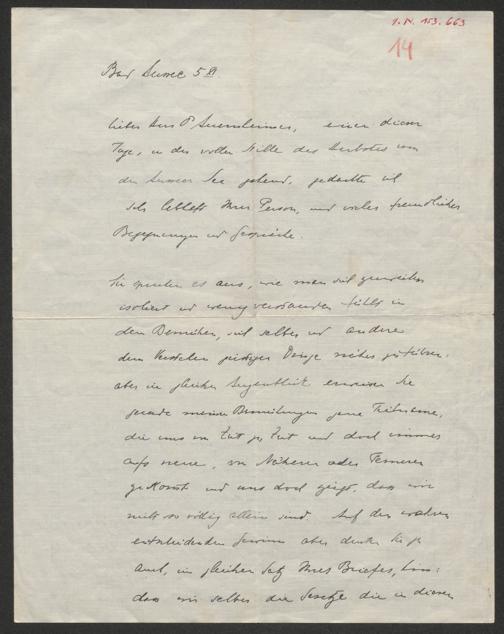 I.N. 153.663
14
Bad Aussee 5 XI
lieber Herr Dr, einen dieser
Tage, in der vollen Stille des Herbstes um
den Ausseer See gehend, gedachte ich
sehr lebhaft Ihrer Person, und vieler freundlicher
Begegnungen und Gespräche.
Sie sprachen es aus, wie man sich
isoliert und wenig verstanden fühlt in
dem Bemühen, sich selber und andere
dem Verstehen geistiger Dinge näher zu führen.
aber im gleichen Augenblick erweisen Sie
gerade meinen Bemühungen jene Teilnahme,
die uns von Zeit zu Zeit und doch immer
aufs neue, von Näheren oder Ferneren
zukommt und uns doch zeigt, dass wir
nicht so völlig allein sind. Auf den wahren
entscheidenden Gewinn aber deuten Sie ja
auch, im gleichen Satz Ihres Briefes, hin:
dass wir selber die Gesetze die in diesen